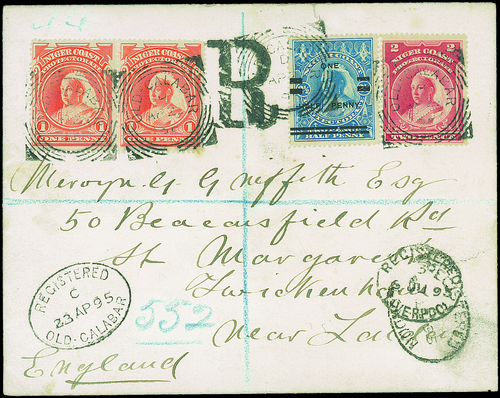 NIGER COAST
PROTECTORATE
1 1
ONE PENNY
NIGER COAST
PROTECTORATE
1
PENNY
OLD CALABAR
R
ONE
HALF PENNY
HALF PENNY
2 2
NIGER COAST
PROTECTORATE
OLD CALABAR
Mervyn. G. Griffith Esq
50 Beaconsfield Rd
St Margarets
Twickenham
Near London
England
REGISTERED
C
23 AP 95
OLD-CALABAR
552
REGISTERED
LIVERPOOL